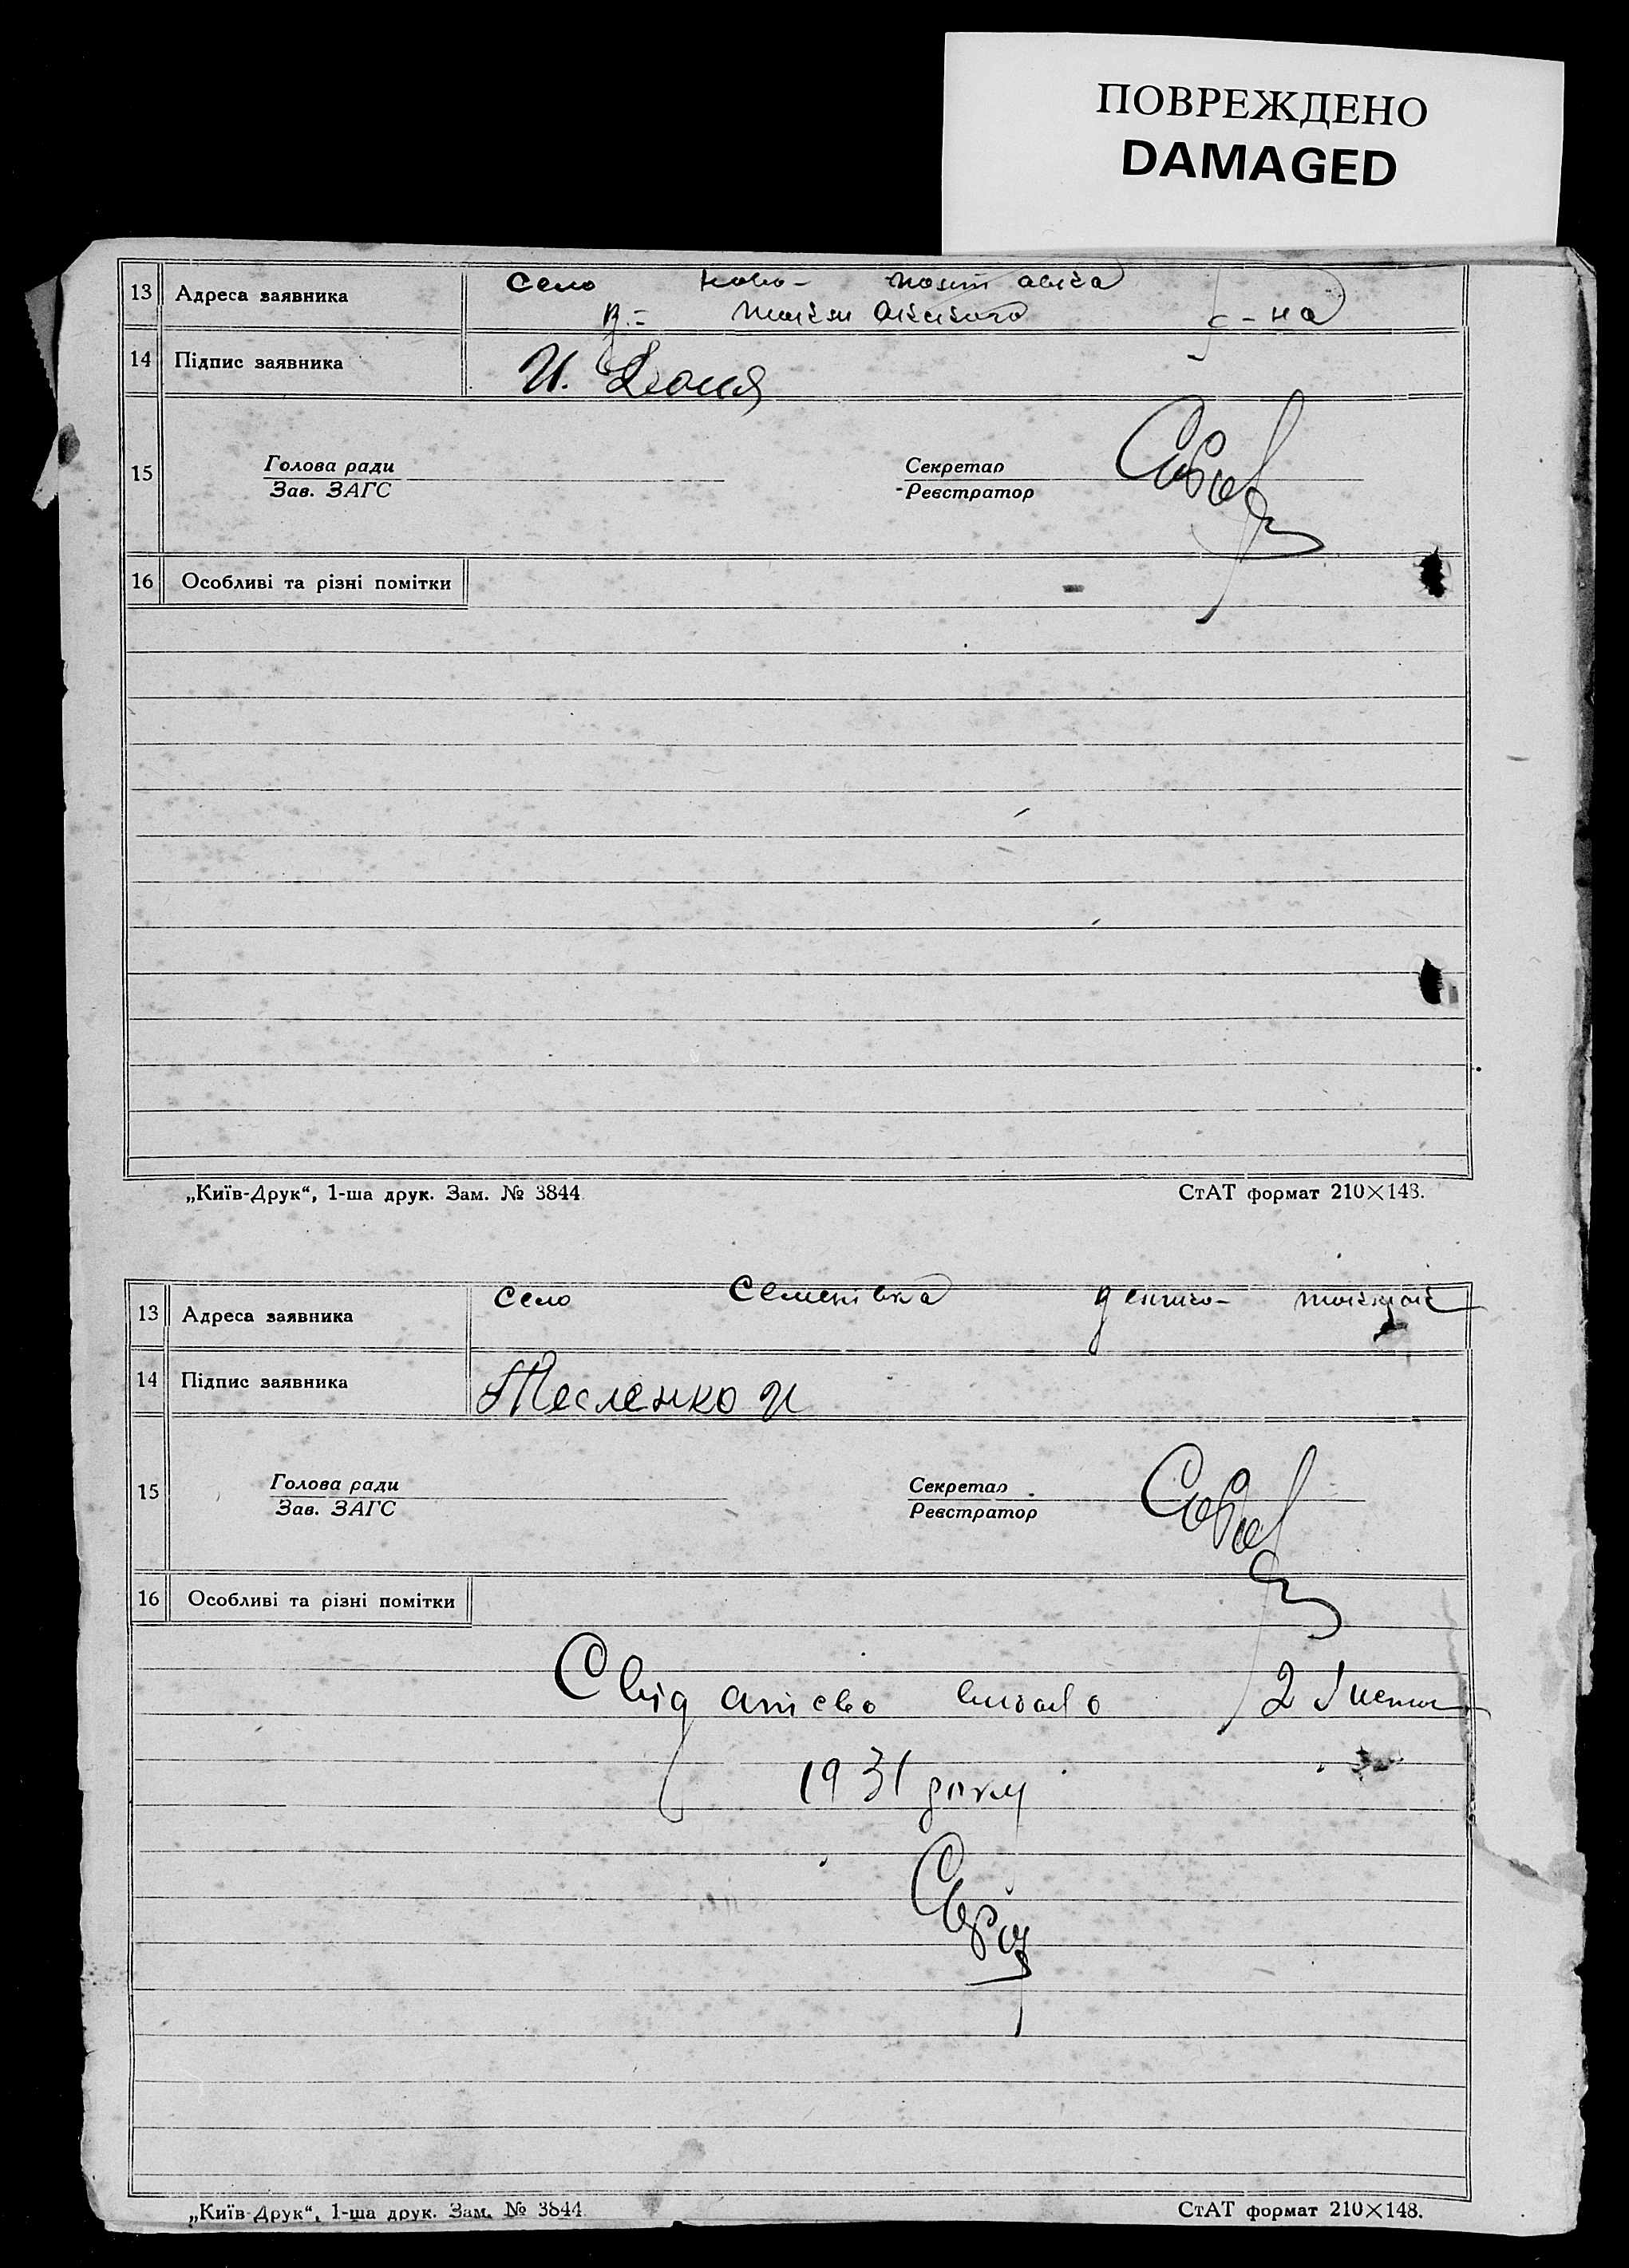 ПОВРЕЖДЕНО
DAMAGED
13 Адреса заявника Село Ново-
р-на
14 Підпис заявника И.
15 Голова ради Секретар
Зав. ЗАГС Реєстратор
16 Особливі та різні помітки
„Київ-Друк“, 1-ша друк. Зам. № 3844 СтАТ формат 210×148.
13 Адреса заявника Село Семенівка
14 Підпис заявника Тесленко И
15 Голова ради Секретар
Зав. ЗАГС Реєстратор
16 Особливі та різні помітки
Свідатсво видано 2
1931 року
„Київ-Друк“, 1-ша друк. Зам. № 3844 СтАТ формат 210×148.